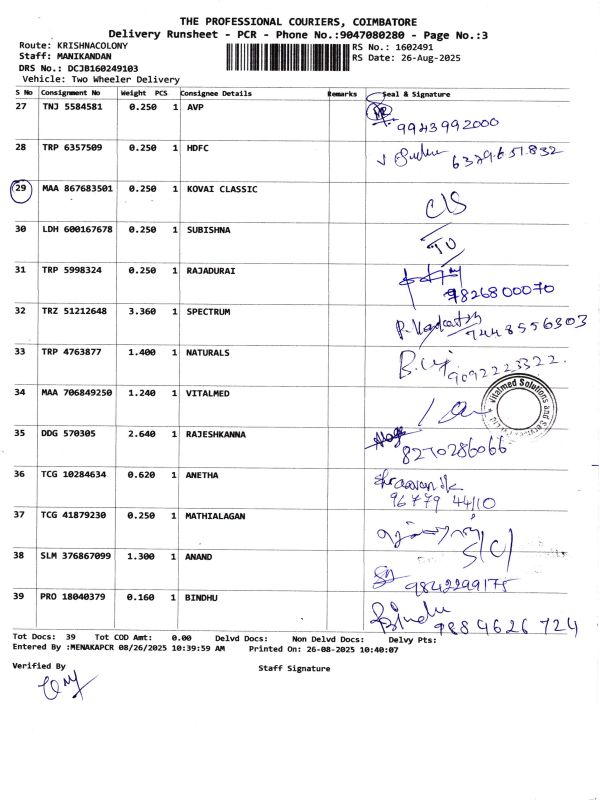 THE PROFESSIONAL COURIERS, COIMBATORE
Delivery Runsheet - PCR - Phone No.:9047080280 - Page No.:3
Route: KRISHNACOLONY
Staff: MANIKANDAN
DRS No.: DCJB160249103
Vehicle: Two Wheeler Delivery
RS No.: 1602491
RS Date: 26-Aug-2025
S No Consignment No Weight PCS Consignee Details Remarks Seal & Signature
27 TNJ 5584581 0.250 1 AVP
9943992000
28 TRP 6357509 0.250 1 HDFC
6379651832
29 MAA 867683501 0.250 1 KOVAI CLASSIC
30 LDH 600167678 0.250 1 SUBISHNA
31 TRP 5998324 0.250 1 RAJADURAI
9826800070
32 TRZ 51212648 3.360 1 SPECTRUM
9448556303
33 TRP 4763877 1.400 1 NATURALS
9092223322.
34 MAA 706849250 1.240 1 VITALMED
Vitalmed Solutions and Services
35 DDG 570305 2.640 1 RAJESHKANNA
8270286066
36 TCG 10284634 0.620 1 ANETHA
96779 44110
37 TCG 41879230 0.250 1 MATHIALAGAN
38 SLM 376867099 1.300 1 ANAND
9842299175
39 PRO 18040379 0.160 1 BINDHU
Bindu
9884626724
Tot Docs: 39 Tot COD Amt: 0.00 Delvd Docs: Non Delvd Docs: Delvy Pts:
Entered By :MENAKAPCR 08/26/2025 10:39:59 AM Printed On: 26-08-2025 10:40:07
Verified By
Staff Signature